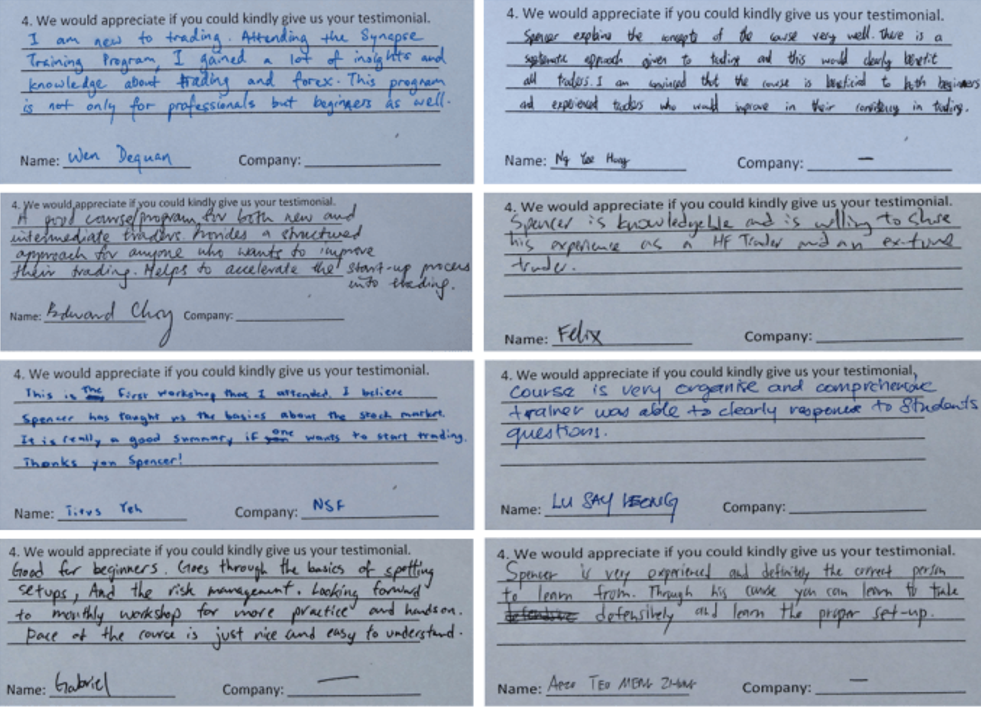 4. We would appreciate if you could kindly give us your testimonial.
I am new to trading. Attending the Synapse
Training Program, I gained a lot of insights and
knowledge about trading and forex. This program
is not only for professionals but beginners as well.
Name: Wen Dequan Company:
4. We would appreciate if you could kindly give us your testimonial.
Spencer explains the concepts of the course very well. There is a
systematic approach given to trading and this would clearly benefit
all traders. I am convinced that the course is beneficial to both beginners
and experienced traders who would improve in their consistency in trading.
Name: Ng Yee Company: —
4. We would appreciate if you could kindly give us your testimonial.
A good course/program for both new and
intermediate traders. Provides a structured
approach for anyone who wants to improve
their trading. Helps to accelerate the start-up process
into trading.
Name: Edward Choy Company:
4. We would appreciate if you could kindly give us your testimonial.
Spencer is knowledgeble and is willing to share
his experience as a HF Trader and an ex-fund
trader.
Name: Felix Company:
4. We would appreciate if you could kindly give us your testimonial.
This is the First workshop that I attended. I believe
Spencer has taught us the basics about the stock market.
It is really a good summary if one wants to start trading.
Thanks you Spencer!
Name: Titus Yeh Company: NSF
4. We would appreciate if you could kindly give us your testimonial,
course is very organise and comprehensive
trainer was able to clearly response to students
questions.
Name: LU SAY LEONG Company:
4. We would appreciate if you could kindly give us your testimonial.
Good for beginners. Goes through the basics of spotting
setups, And the risk management. Looking forward
to monthly workshop for more practice and handson.
Pace of the course is just nice and easy to understand.
Name: Gabriel Company: —
4. We would appreciate if you could kindly give us your testimonial.
Spencer is very experienced and definitely the correct person
to learn from. Through his course you can learn to take
defensive defensively and learn the proper set-up.
Name: TEO MENG Company: —